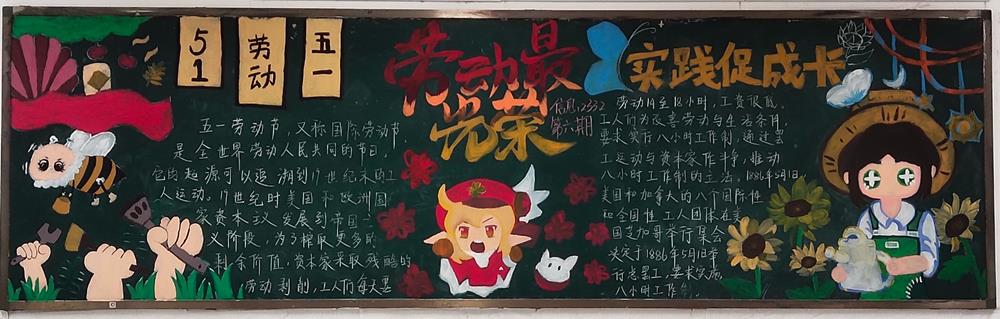 51
劳动
五一
劳动最
光荣
实践促成长
信息2332
第六期
五一劳动节，又称国际劳动节
是全世界劳动人民共同的节日，
它的起源可以追溯到19世纪末的工
人运动。19世纪时美国和欧洲国
家资本主义发展到帝国主
义阶段，为了榨取更多的
剩余价值，资本家采取残酷的
劳动剥削，工人们每天要
劳动14至18小时，工资很低。
工人们为改善劳动与生活条件，
要求实行八小时工作制，通过罢
工运动与资本家作斗争，推动
八小时工作制的立法。1886年5月1日
美国和加拿大的八个国际性
和全国性工人团体在美
国芝加哥举行集会
决定于1886年5月1日举
行总罢工，要求实施
八小时工作制